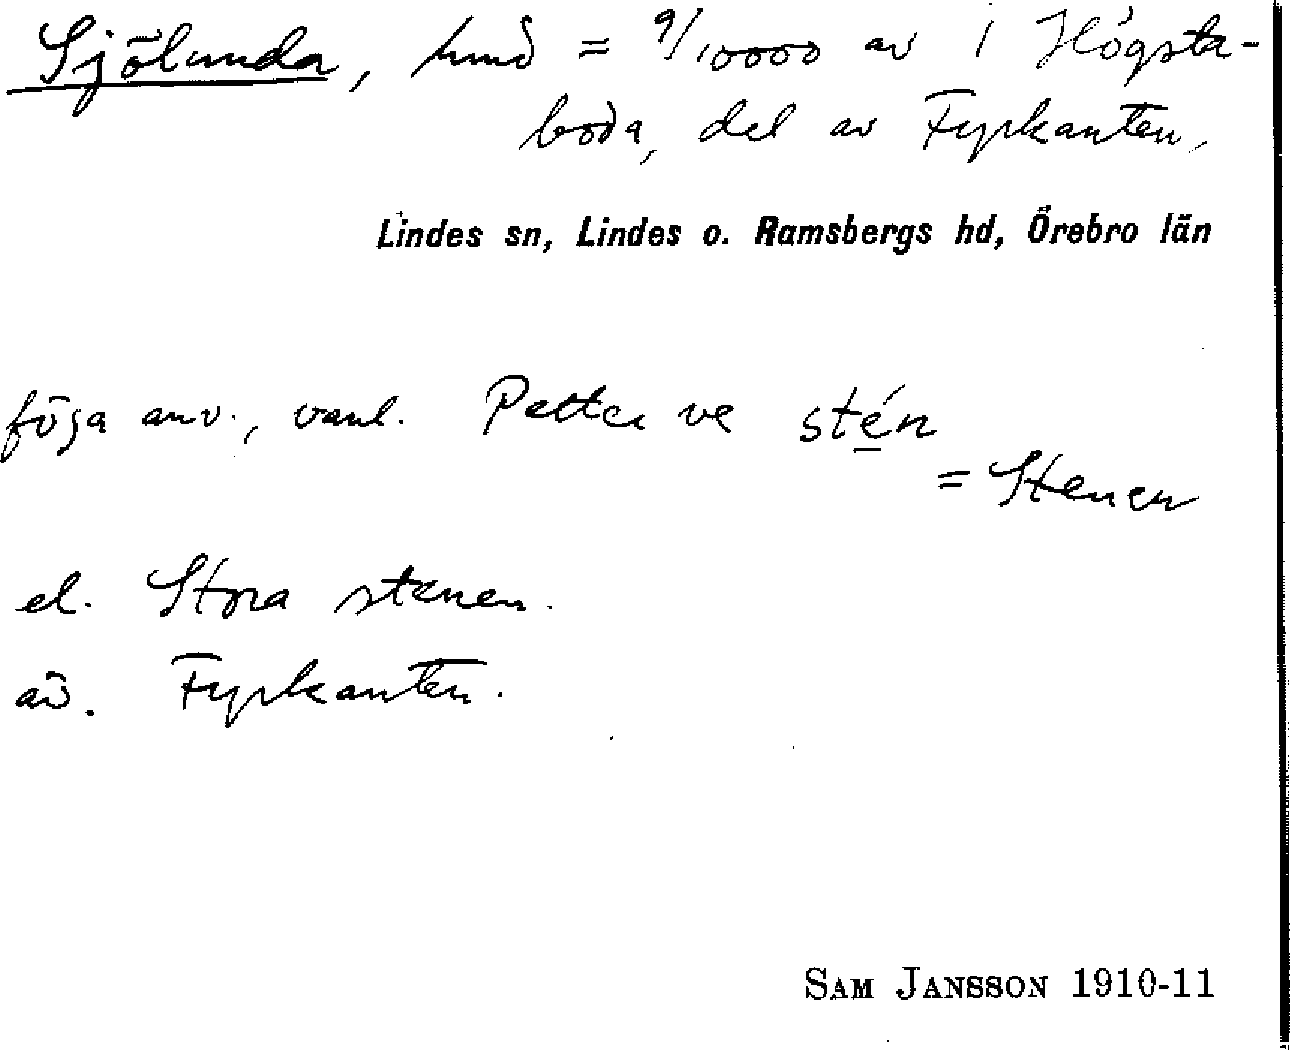 Sjölunda, hmd = 9/10000 av 1 Högsta-
boda, del av Fyrkanten,
Lindes sn, Lindes o. Ramsbergs hd, Örebro län
föga anv., vanl. Petter ve stén
= Stenen
el. Stora stenen.
av. Fyrkanten.
SAM JANSSON 1910-11